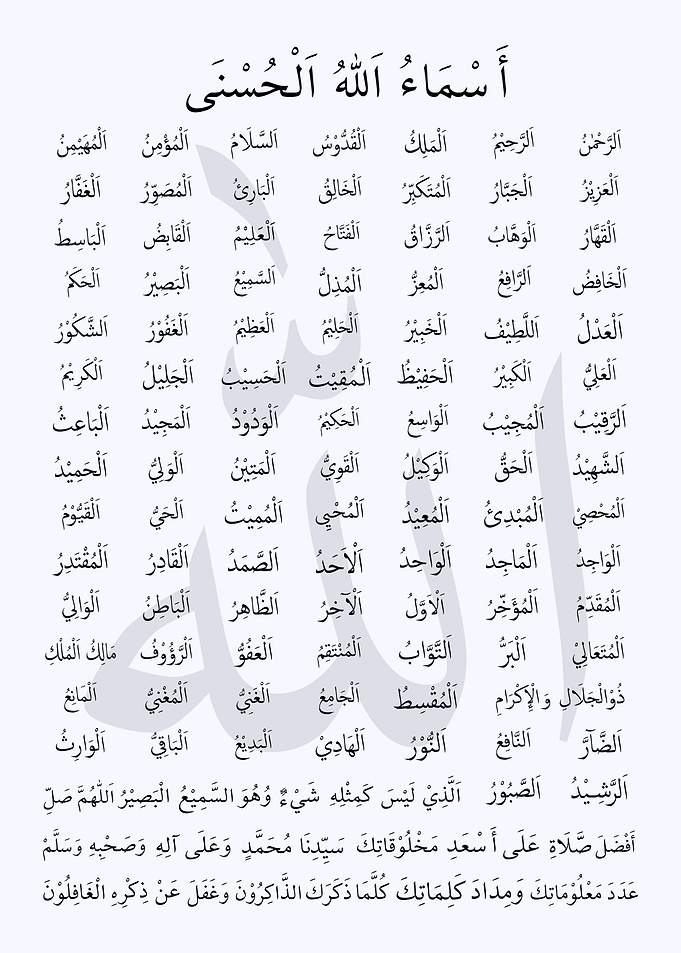 أَسْمَاءُ اَللهُ اَلْحُسْنَى
اَلرَّحْمٰنُ اَلرَّحِيْمُ اَلْمَلِكُ اَلْقُدُّوْسُ اَلسَّلَامُ اَلْمُؤْمِنُ اَلْمُهَيْمِنُ
اَلْعَزِيْزُ اَلْجَبَّارُ اَلْمُتَكَبِّرُ اَلْخَالِقُ اَلْبَارِئُ اَلْمُصَوِّرُ اَلْغَفَّارُ
اَلْقَهَّارُ اَلْوَهَّابُ اَلرَّزَّاقُ اَلْفَتَّاحُ اَلْعَلِيْمُ اَلْقَابِضُ اَلْبَاسِطُ
اَلْخَافِضُ اَلرَّافِعُ اَلْمُعِزُّ اَلْمُذِلُّ اَلسَّمِيْعُ اَلْبَصِيْرُ اَلْحَكَمُ
اَلْعَدْلُ اَللَّطِيْفُ اَلْخَبِيْرُ اَلْحَلِيْمُ اَلْعَظِيْمُ اَلْغَفُوْرُ اَلشَّكُوْرُ
اَلْعَلِيُّ اَلْكَبِيْرُ اَلْحَفِيْظُ اَلْمُقِيْتُ اَلْحَسِيْبُ اَلْجَلِيْلُ اَلْكَرِيْمُ
اَلرَّقِيْبُ اَلْمُجِيْبُ اَلْوَاسِعُ اَلْحَكِيْمُ اَلْوَدُوْدُ اَلْمَجِيْدُ اَلْبَاعِثُ
اَلشَّهِيْدُ اَلْحَقُّ اَلْوَكِيْلُ اَلْقَوِيُّ اَلْمَتِيْنُ اَلْوَلِيُّ اَلْحَمِيْدُ
اَلْمُحْصِيْ اَلْمُبْدِئُ اَلْمُعِيْدُ اَلْمُحْيِي اَلْمُمِيْتُ اَلْحَيُّ اَلْقَيُّوْمُ
اَلْوَاجِدُ اَلْمَاجِدُ اَلْوَاحِدُ اَلْاَحَدُ اَلصَّمَدُ اَلْقَادِرُ اَلْمُقْتَدِرُ
اَلْمُقَدِّمُ اَلْمُؤَخِّرُ اَلْاَوَّلُ اَلْآخِرُ اَلظَّاهِرُ اَلْبَاطِنُ اَلْوَالِيُّ
اَلْمُتَعَالِيْ اَلْبَرُّ اَلتَّوَّابُ اَلْمُنْتَقِمُ اَلْعَفُوُّ اَلرَّؤُوْفُ مَالِكُ الْمُلْكِ
ذُوْالْجَلَالِ وَالْإِكْرَامِ اَلْمُقْسِطُ اَلْجَامِعُ اَلْغَنِيُّ اَلْمُغْنِيُّ اَلْمَانِعُ
اَلضَّآرَّ اَلنَّافِعُ اَلنُّوْرُ اَلْهَادِيْ اَلْبَدِيْعُ اَلْبَاقِيُّ اَلْوَارِثُ
اَلرَّشِيْدُ اَلصَّبُوْرُ اَلَّذِيْ لَيْسَ كَمِثْلِهِ شَيْءٌ وَهُوَ السَّمِيْعُ الْبَصِيْرُ اَللهُمَّ صَلِّ
أَفْضَلَ صَّلَاةِ عَلَى أَسْعَدِ مَخْلُوْقَاتِكَ سَيِّدِنَا مُحَمَّدٍ وَعَلَى آلِهِ وَصَحْبِهِ وَسَلَّمْ
عَدَدَ مَعْلُوْمَاتِكَ وَمِدَادَ كَلِمَاتِكَ كُلَّمَا ذَكَرَكَ الذَّاكِرُوْنَ وَغَفَلَ عَنْ ذِكْرِهِ الْغَافِلُوْنَ
الله